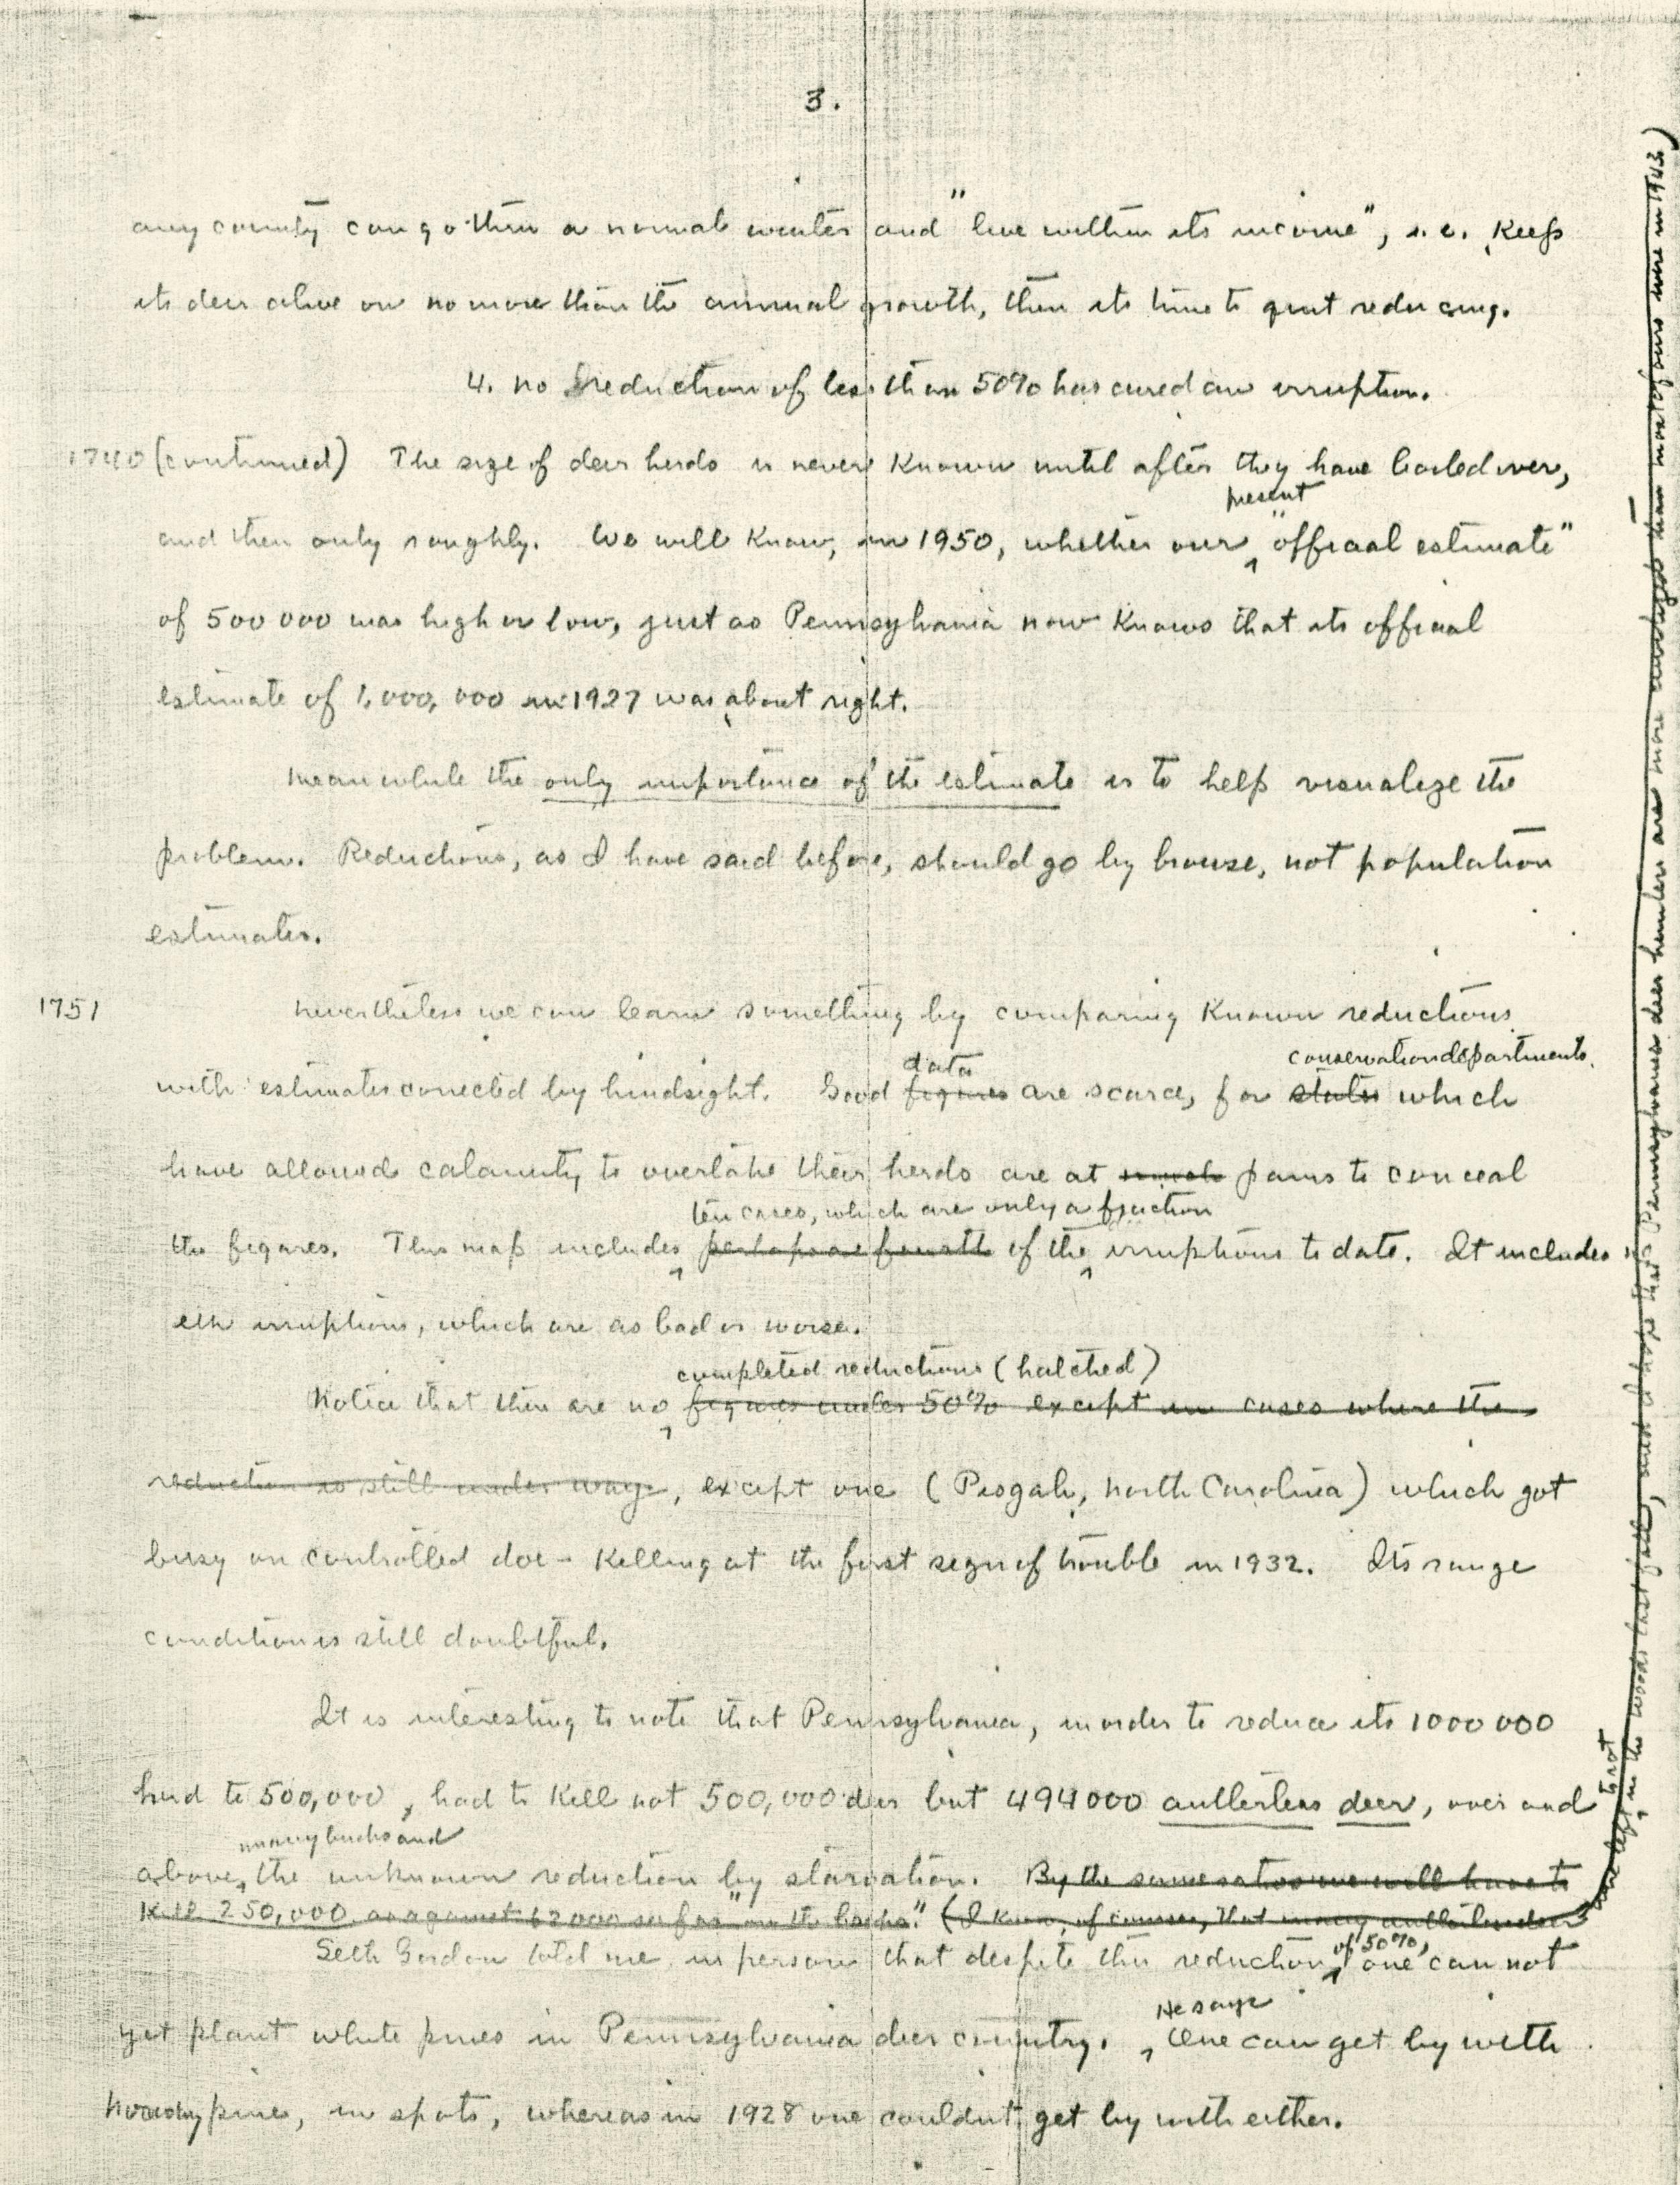 3.
any county can go thru a normal winter and "live within its income", i.e. keep
its deer alive on no more than the annual growth, then its time to quit reducing.
4. No reduction of less than 50% has cured an irruption.
1740 (continued) The size of deer herds is never known until after they have boiled over,
present
and then only roughly. We will know, in 1950, whether our "official estimate"
of 500 000 was high or low, just as Pennsylvania now knows that its official
estimate of 1,000,000 in 1927 was about right.
Meanwhile the only importance of the estimate is to help visualize the
problem. Reductions, as I have said before, should go by browse, not population
estimates.
1751 Nevertheless we can learn something by comparing known reductions
data conservation departments
with estimates corrected by hindsight. Good figures are scarce, for states which
have allowed calamity to overtake their herds are at much pains to conceal
ten cases, which are only a fraction
the figures. This map includes perhaps a fourth of the irruptions to date. It includes
elk irruptions, which are as bad or worse.
completed reductions (hatched)
Notice that there are no figures under 50% except in cases where the
reduction is still under way, except one (Pisgah, North Carolina) which got
busy on controlled doe-killing at the first sign of trouble in 1932. Its range
condition is still doubtful.
It is interesting to note that Pennsylvania, in order to reduce its 1000 000
herd to 500,000, had to kill not 500,000 deer but 494000 antlerless deer, over and
many bucks and
above, the unknown reduction by starvation. By the same ratio we will have to
kill 250,000 as against 62000 so far "in the bag". (I know, of course, that many antlerless deer
were left in the woods last fall, more of them, but Pennsylvania deer hunters are more careful than most of ours were in 1943)
of 50%,
Seth Gordon told me in person that despite this reduction, one can not
He says
yet plant white pines in Pennsylvania deer country. One can get by with
Norway pines, in spots, whereas in 1928 one couldn't get by with either.